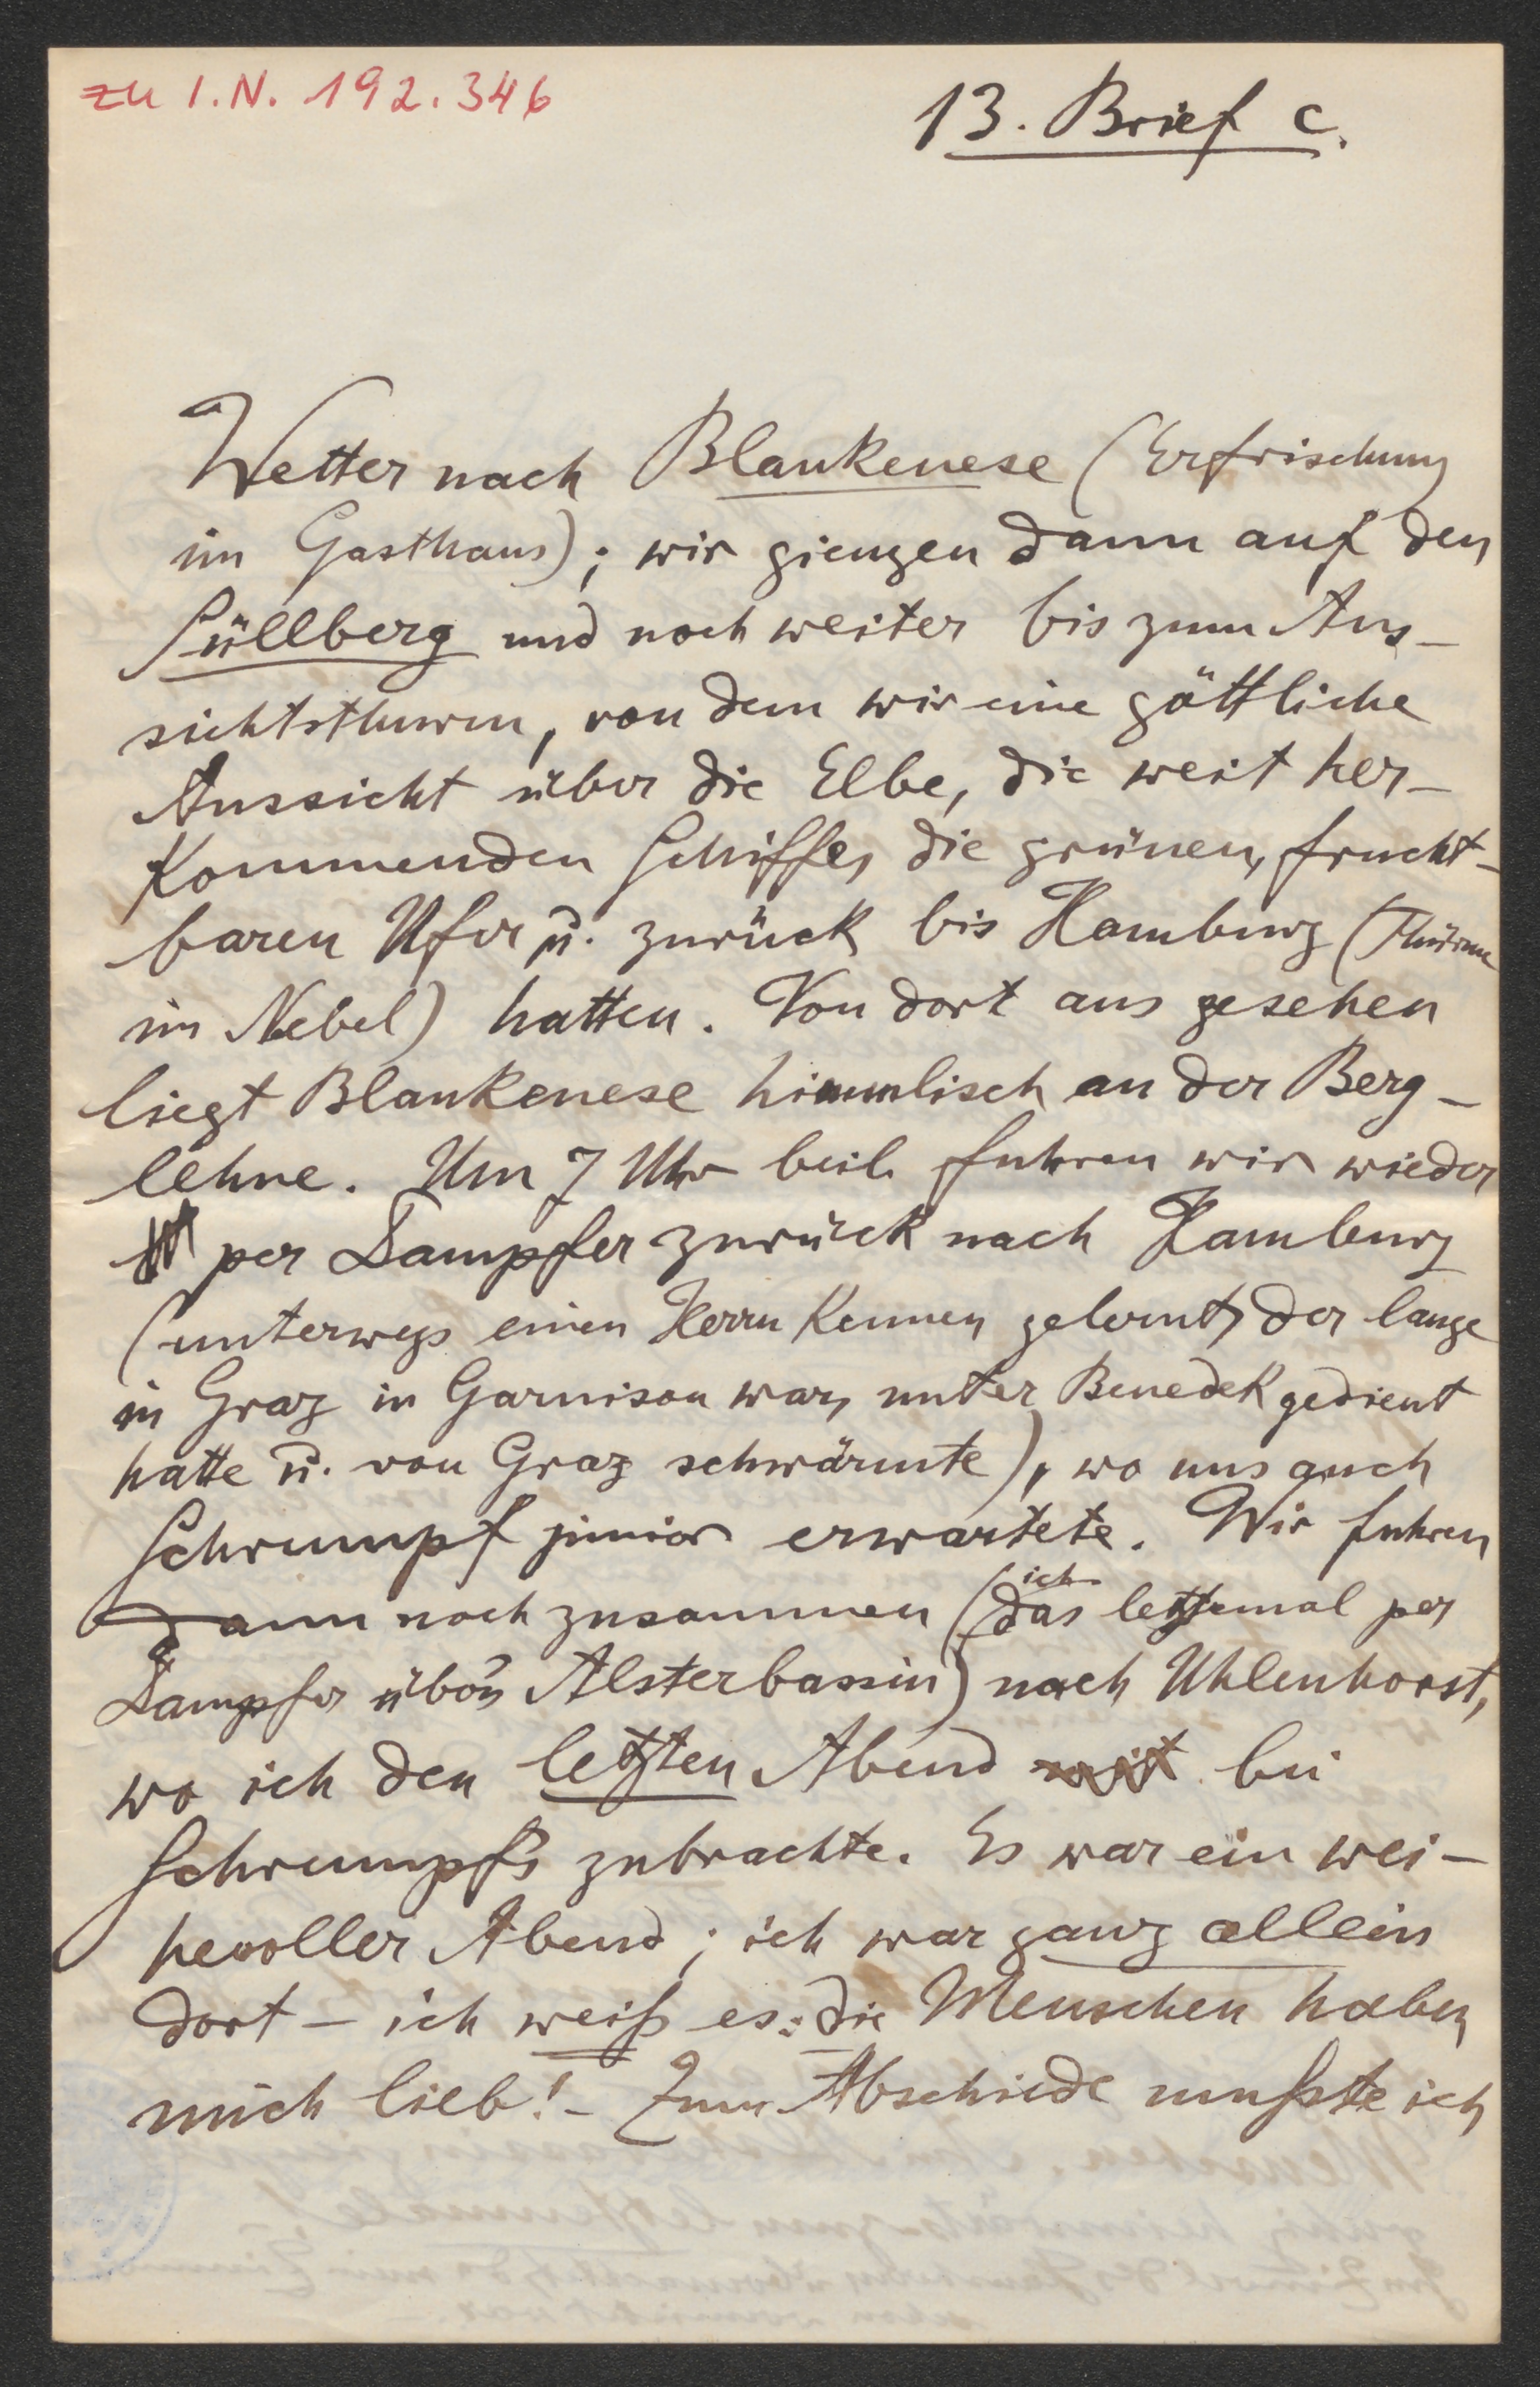 zu I.N. 192.346
13. Brief c.
Wetter nach Blankenese (Erfrischung
im Gasthaus); wir giengen dann auf den
Süllberg und noch weiter bis zum Aus-
sichtsthurm, von dem wir eine göttliche
Aussicht über die Elbe, die weit her-
kommenden Schiffe, die grünen, frucht-
baren Ufer u. zurück bis Hamburg (Thürme
im Nebel) hatten. Von dort aus gesehen
liegt Blankenese himmlisch an der Berg-
lehne. Um 7 Uhr beil. fuhren wir wieder
per Dampfer zurück nach Hamburg
(unterwegs einen Herrn kennen gelernt, der lange
in Graz in Garnison war, unter Benedek gedient
hatte u. von Graz schwärmte), wo uns auch
Schrumpf junior erwartete. Wir fuhren
dann noch zusammen (ich das letztemal per
Dampfer über'n Alsterbassin) nach Uhlenhorst,
wo ich den letzten Abend mit bei
Schrumpf's zubrachte. Es war ein wei-
hevoller Abend; ich war ganz allein
dort – ich weiß es: die Menschen haben
mich lieb! – Zum Abschiede mußte ich